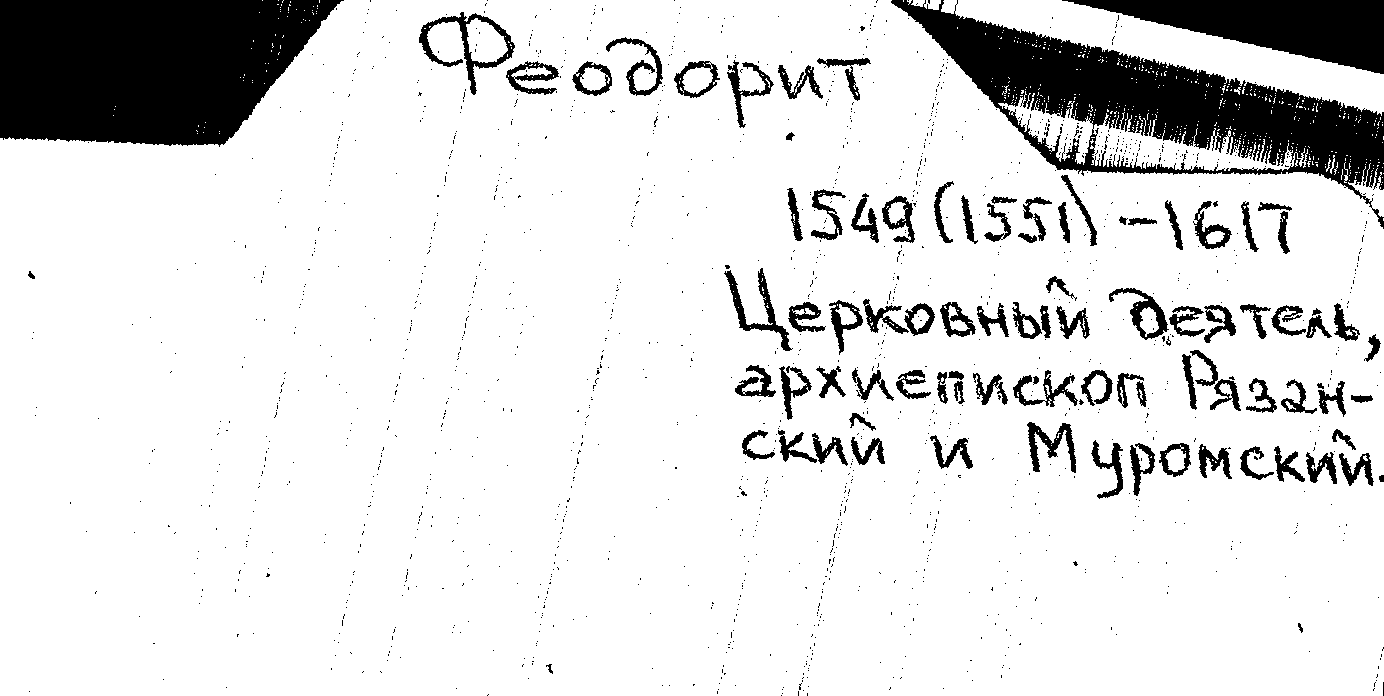 Феодорит
1549 (1551) - 1617
Церковный деятель,
архиепископ Рязан-
ский и Муромский.